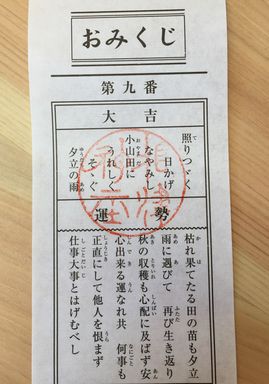 おみくじ
第九番
大吉
照りつゞく
日かげ
なやみし
小山田に
うれしく
そゝぐ
夕立の雨
運勢
枯れ果てたる田の苗も夕立
雨に遇びて 再び生き返り
秋の収穫も心配に及ばず安
心出来る運なれ共 何事も
正直にして他人を恨まず
仕事大事とはげむべし